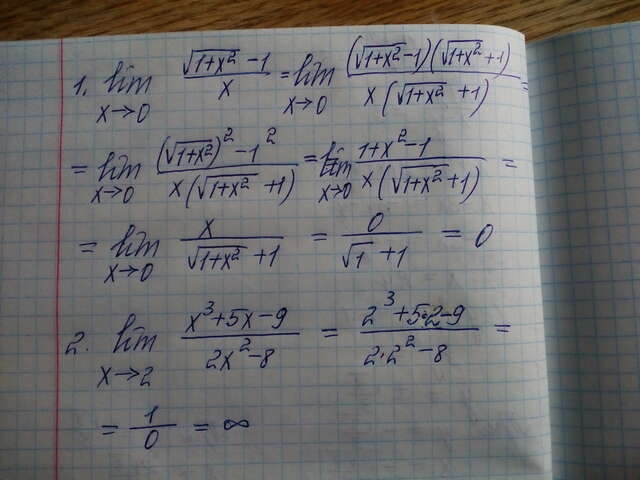 1. lim x→0 (√(1+x²) -1)/x = lim x→0 ((√(1+x²) -1)(√(1+x²) +1))/(x(√(1+x²) +1)) =
= lim x→0 ((√(1+x²))² - 1²)/(x(√(1+x²) +1)) = lim x→0 (1+x²-1)/(x(√(1+x²) +1)) =
= lim x→0 x/(√(1+x²) +1) = 0/(√1 +1) = 0
2. lim x→2 (x³+5x-9)/(2x²-8) = (2³+5·2-9)/(2·2²-8) =
= 1/0 = ∞